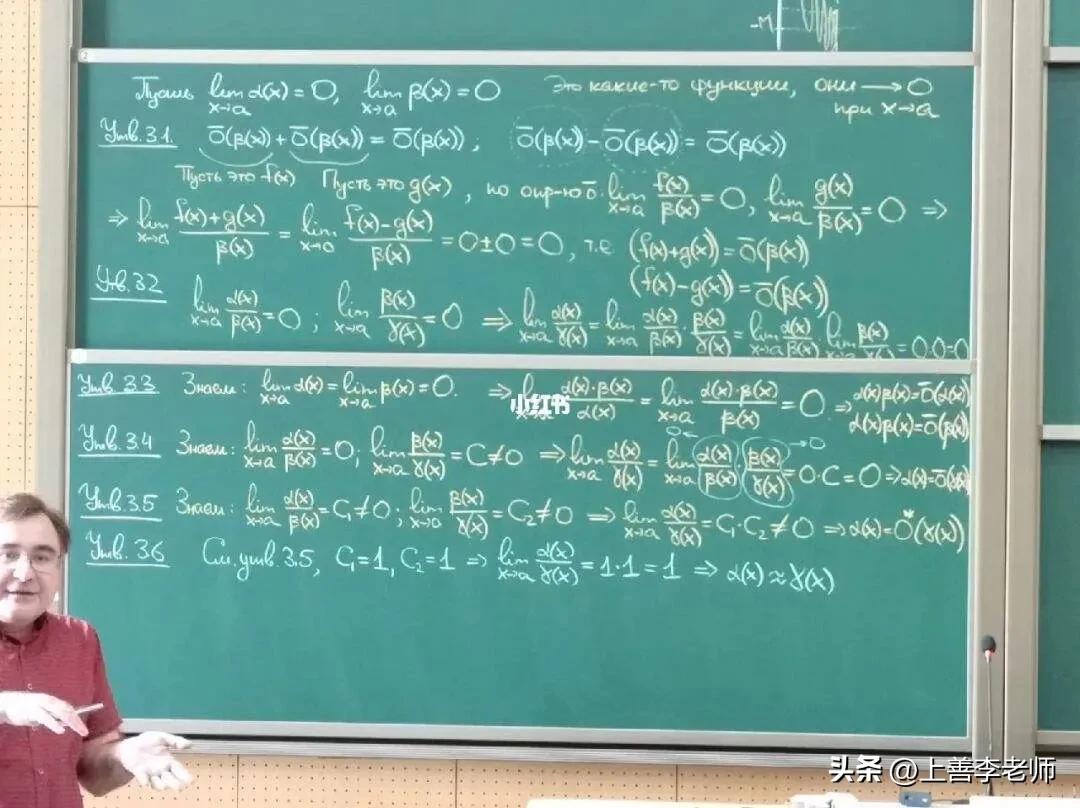 -M
Пусть lim x→a α(x) = 0, lim x→a β(x) = 0 Это какие-то функции, они → 0
при x→a
Утв.3.1. ō(β(x)) + ō(β(x)) = ō(β(x)) ; ō(β(x)) - ō(β(x)) = ō(β(x))
Пусть это f(x) Пусть это g(x), по опр-ю ō: lim x→a f(x)/β(x) = 0, lim x→a g(x)/β(x) = 0 ⇒
⇒ lim x→a (f(x)+g(x))/β(x) = lim x→a (f(x)-g(x))/β(x) = 0±0 = 0, т.е. (f(x)+g(x)) = ō(β(x))
(f(x)-g(x)) = ō(β(x))
Утв.3.2 lim x→a α(x)/β(x) = 0 ; lim x→a β(x)/γ(x) = 0 ⇒ lim x→a α(x)/γ(x) = lim x→a α(x)/β(x) · β(x)/γ(x) = lim x→a α(x)/β(x) · lim x→a β(x)/γ(x) = 0·0=0
Утв.3.3 Знаем: lim x→a α(x) = lim x→a β(x) = 0. ⇒ lim x→a α(x)·β(x)/α(x) = lim x→a α(x)·β(x)/β(x) = 0 ⇒ α(x)β(x) = ō(α(x))
α(x)β(x) = ō(β(x))
小红书
Утв.3.4 Знаем: lim x→a α(x)/β(x) = 0; lim x→a β(x)/γ(x) = C≠0 ⇒ lim x→a α(x)/γ(x) = lim x→a α(x)/β(x) · β(x)/γ(x) = 0·C = 0 ⇒ α(x) = ō(γ(x))
Утв.3.5 Знаем: lim x→a α(x)/β(x) = C₁≠0; lim x→a β(x)/γ(x) = C₂≠0 ⇒ lim x→a α(x)/γ(x) = C₁·C₂ ≠ 0 ⇒ α(x) = O*(γ(x))
Утв.3.6 См. утв.3.5, C₁=1, C₂=1 ⇒ lim x→a α(x)/γ(x) = 1·1 = 1 ⇒ α(x) ≈ γ(x)
头条 @上善李老师